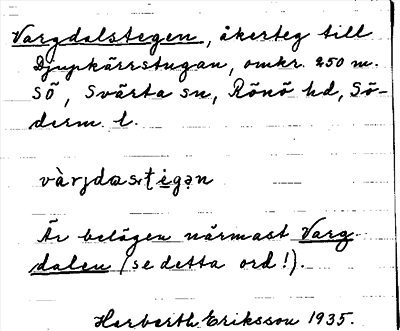 Vargdalstegen, åkerteg till
Djupkärrstugan, omkr. 250 m.
SÖ, Svärta sn, Rönö hd, Sö-
derm. l.
vàrjdɑsteg̣ən
Är belägen närmast Varg
dalen (se detta ord!).
Herberth Eriksson 1935.